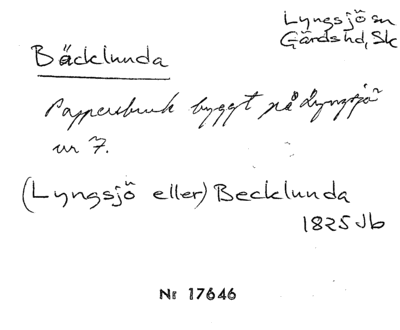 Lyngsjö sn
Gärds hd, Sk
Bäcklunda
Pappersbruk byggt på Lyngsjö
nr 7.
(Lyngsjö eller) Becklunda
1825 Jb
Nr 17646